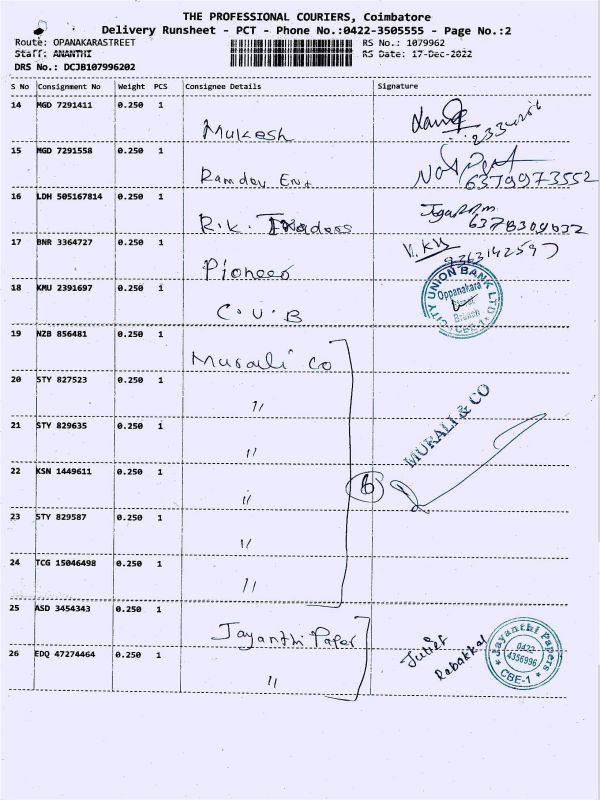 THE PROFESSIONAL COURIERS, Coimbatore
Delivery Runsheet - PCT - Phone No.:0422-3505555 - Page No.:2
Route: OPANAKARASTREET RS No.: 1079962
Staff: ANANTHI RS Date: 17-Dec-2022
DRS No.: DCJB107996202
S No Consignment No Weight PCS Consignee Details Signature
14 MGD 7291411 0.250 1 Mukesh
15 MGD 7291558 0.250 1 Ramdev Ent 6379973552
16 LDH 505167814 0.250 1 R.K. Traders
17 BNR 3364727 0.250 1 Pioneer
18 KMU 2391697 0.250 1 C.U.B CITY UNION BANK LTD Oppanakara Street Branch CBE-1
19 NZB 856481 0.250 1 Murali Co
20 STY 827523 0.250 1 "
21 STY 829635 0.250 1 " MURALI & CO
22 KSN 1449611 0.250 1 " 6
23 STY 829587 0.250 1 "
24 TCG 15046498 0.250 1 "
25 ASD 3454343 0.250 1 Jayanthi Paper
26 EDQ 47274464 0.250 1 " Jayanthi Papers 0422 4356996 CBE-1